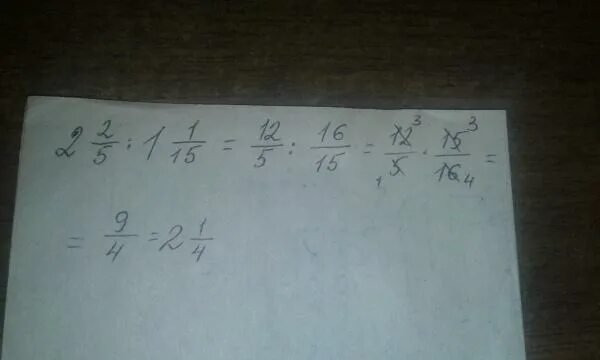 2 2/5 : 1 1/15 = 12/5 : 16/15 = 12 3/5 1 · 15 3/16 4 =
= 9/4 = 2 1/4